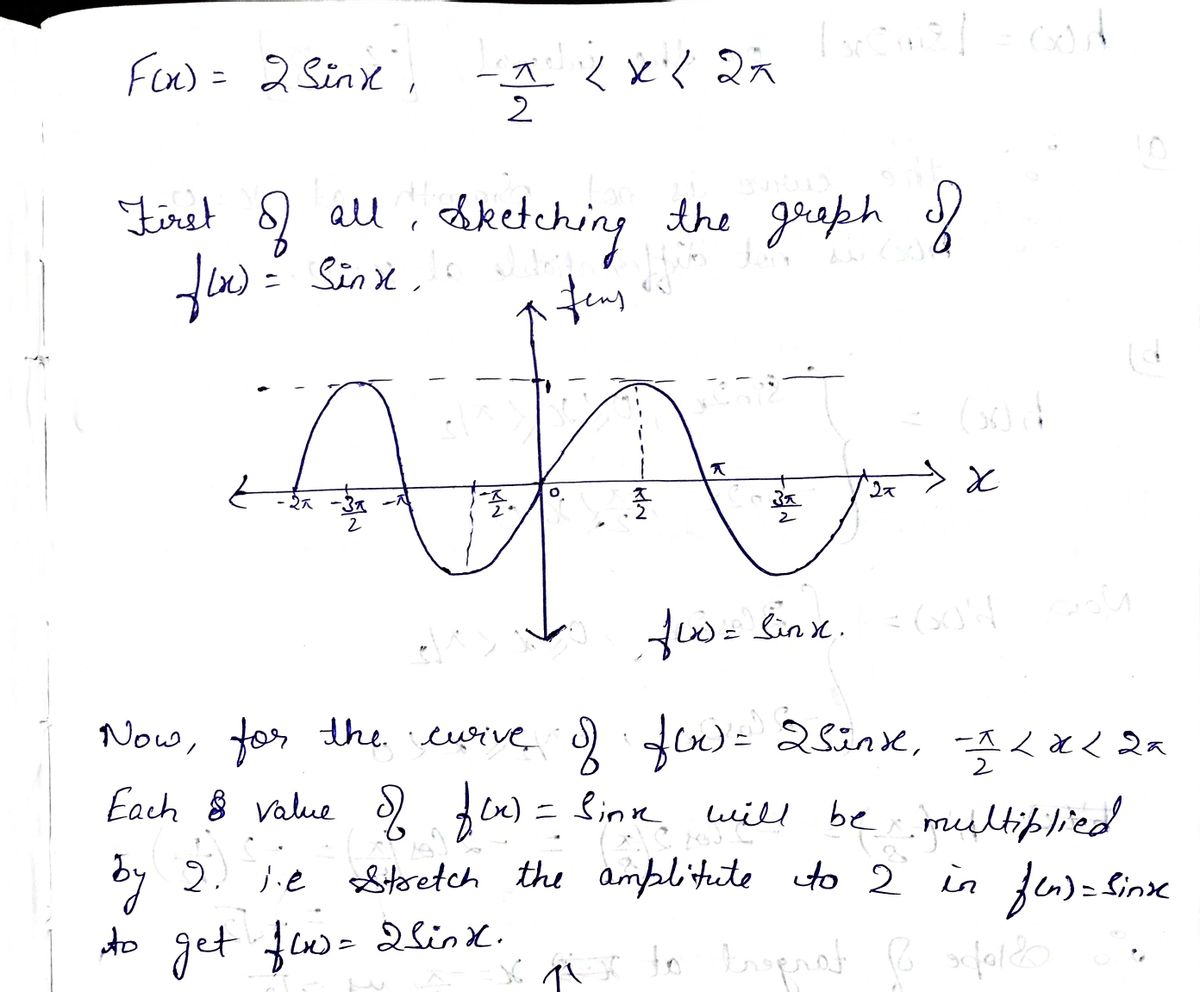 F(x) = 2 Sinx, -π/2 < x < 2π
First of all, Sketching the graph of
f(x) = Sinx.
f(x)
1
-2π -3π/2 -π -π/2 0 π/2 π 3π/2 2π x
f(x) = Sinx.
Now, for the curve of f(x) = 2Sinx, -π/2 < x < 2π
Each value of f(x) = Sinx will be multiplied
by 2. i.e Stretch the amplitute to 2 in f(x) = Sinx
to get f(x) = 2Sinx.